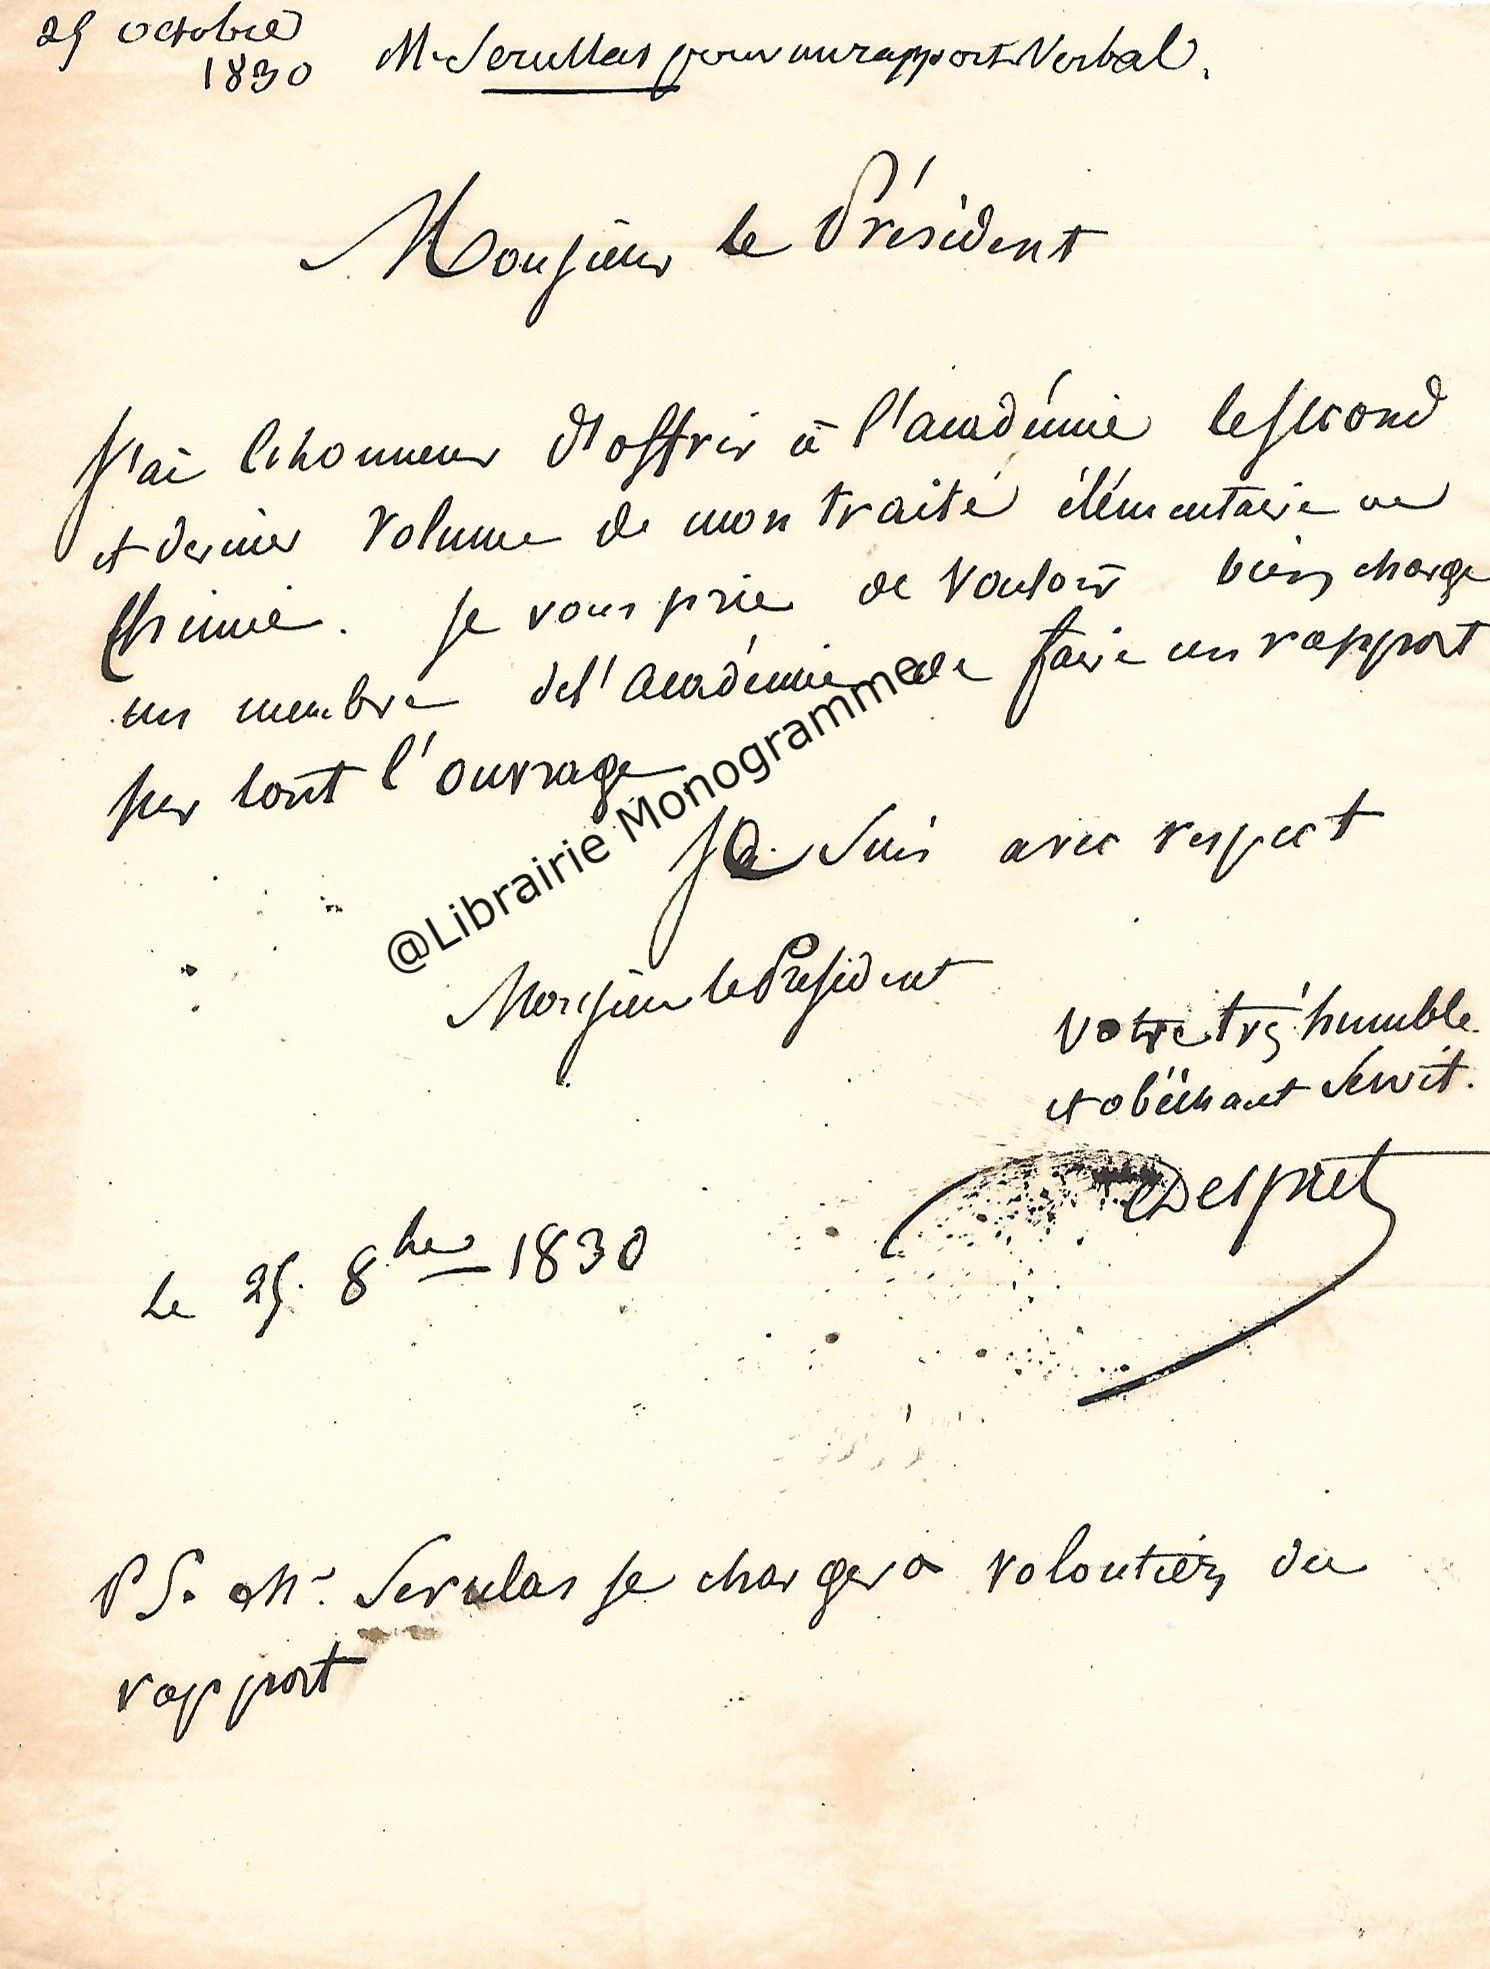 25 octobre
1830
Mr Serullas pour un rapport Verbal.
Monsieur le Président
J'ai l'honneur d'offrir à l'académie le second
et dernier volume de mon traité élémentaire de
Chimie. Je vous prie de vouloir bien charge
un membre de l'académie de faire un rapport
sur tout l'ouvrage
@Librairie Monogramme
Je suis avec respect
Monsieur le Président
Votre très humble
et obéissant servit.
CDespretz
Le 25. 8bre 1830
PS. Mr. Serulas se chargera volontiers du
rapport